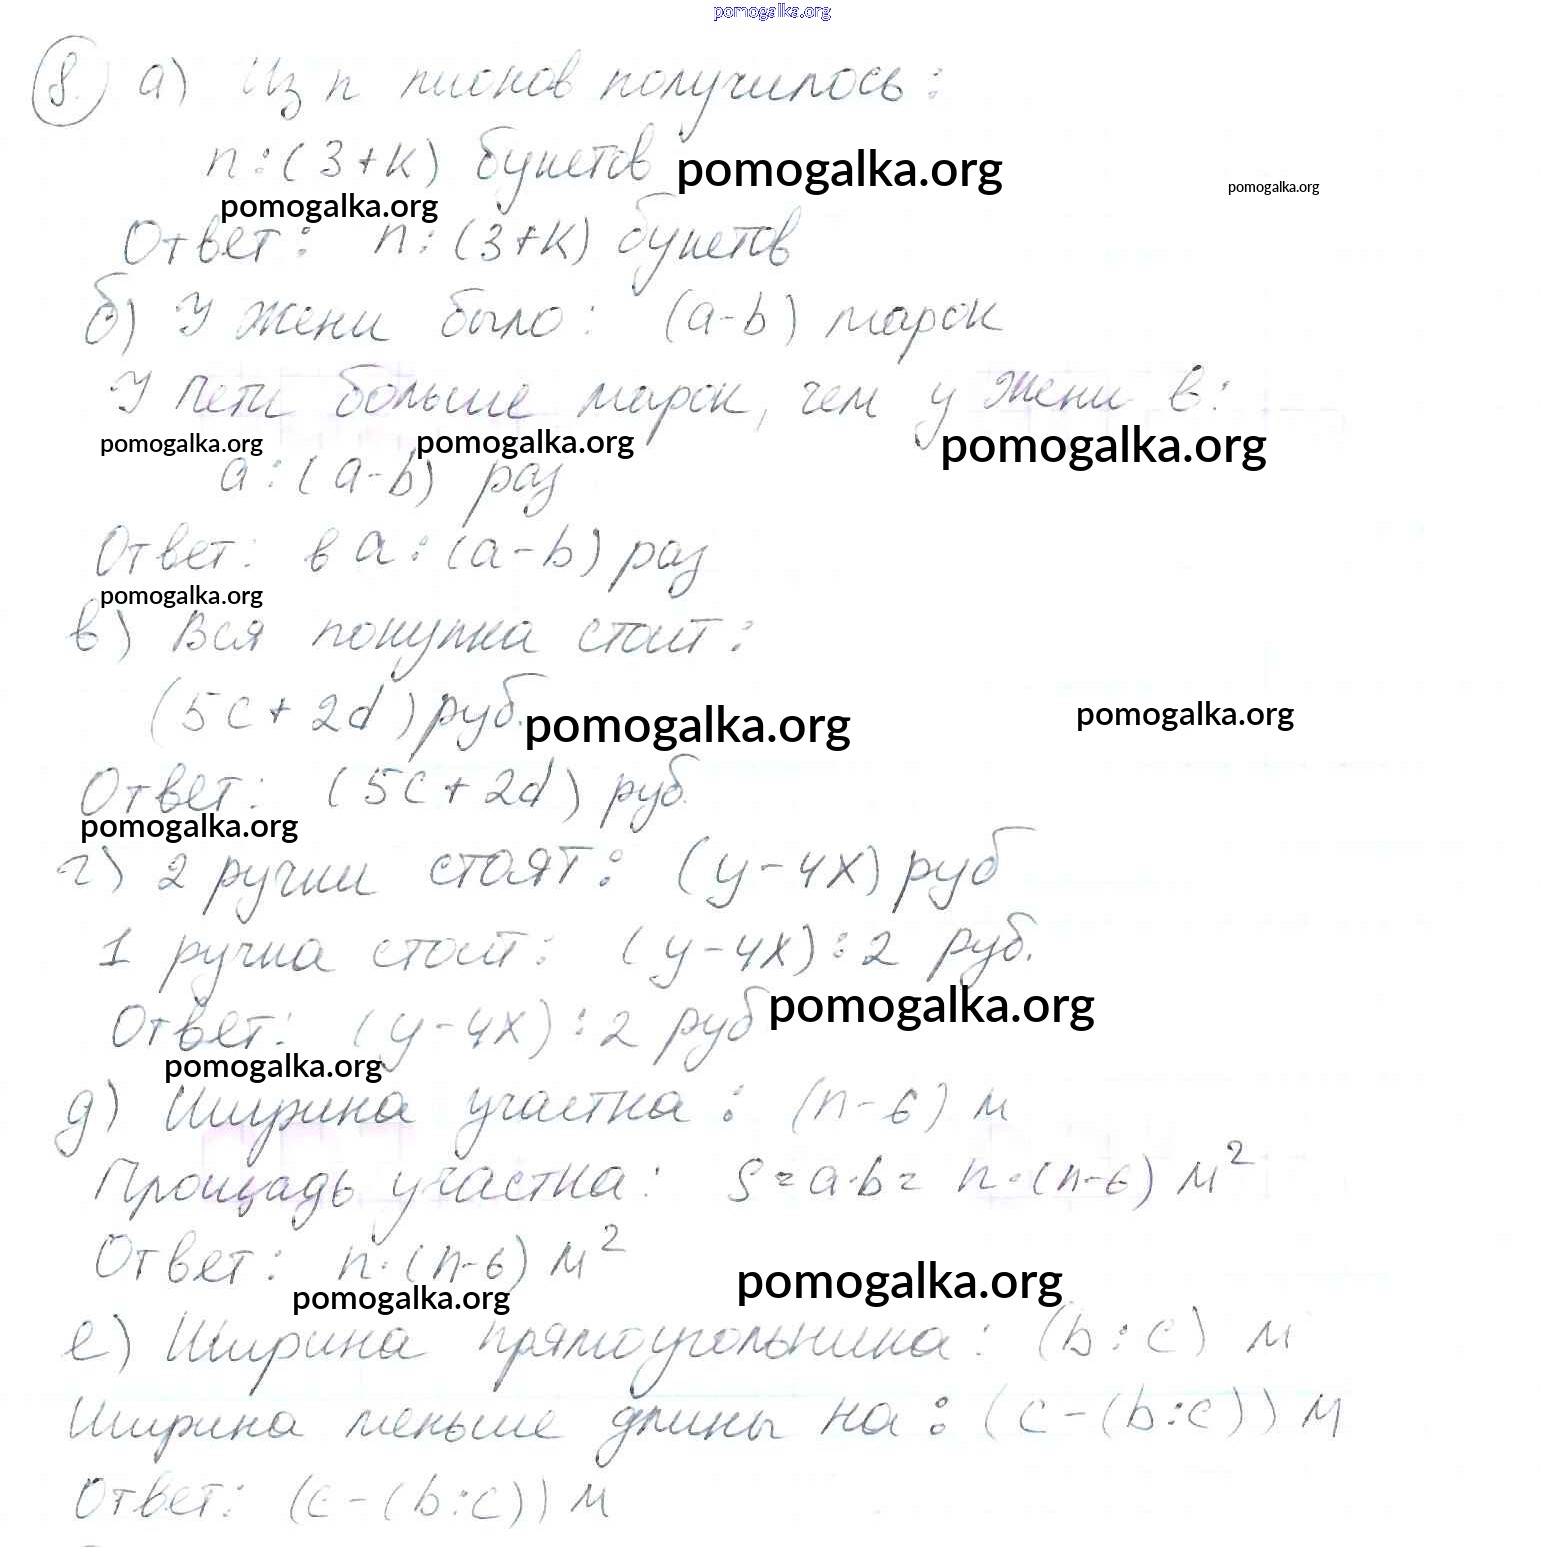 pomogalka.org
8. а) Из n пионов получилось:
n:(3+k) букетов pomogalka.org
pomogalka.org
pomogalka.org
Ответ: n:(3+k) букетов
б) У Жени было: (a-b) марок
У Пети больше марок, чем у Жени в:
pomogalka.org pomogalka.org pomogalka.org
a:(a-b) раз
Ответ: в a:(a-b) раз
pomogalka.org
в) Вся покупка стоит:
(5c+2d) руб. pomogalka.org pomogalka.org
Ответ: (5c+2d) руб.
pomogalka.org
г) 2 ручки стоят: (y-4x) руб
1 ручка стоит: (y-4x):2 руб.
Ответ: (y-4x):2 руб pomogalka.org
pomogalka.org
д) Ширина участка: (n-6) м
Площадь участка: S=a·b= n·(n-6) м²
Ответ: n·(n-6) м²
pomogalka.org pomogalka.org
е) Ширина прямоугольника: (b:c) м
Ширина меньше длины на: (c-(b:c)) м
Ответ: (c-(b:c)) м